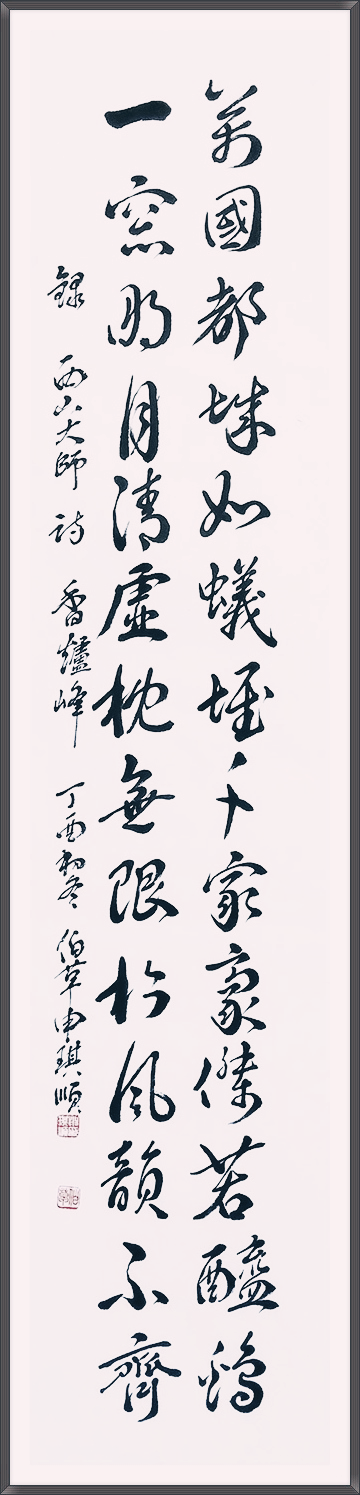 萬國都城如蟻垤千家豪傑若醯鷄
一窓明月清虛枕無限松風韻不齊
錄 西山大師 詩 香爐峰 丁酉初冬 伯草申琪順